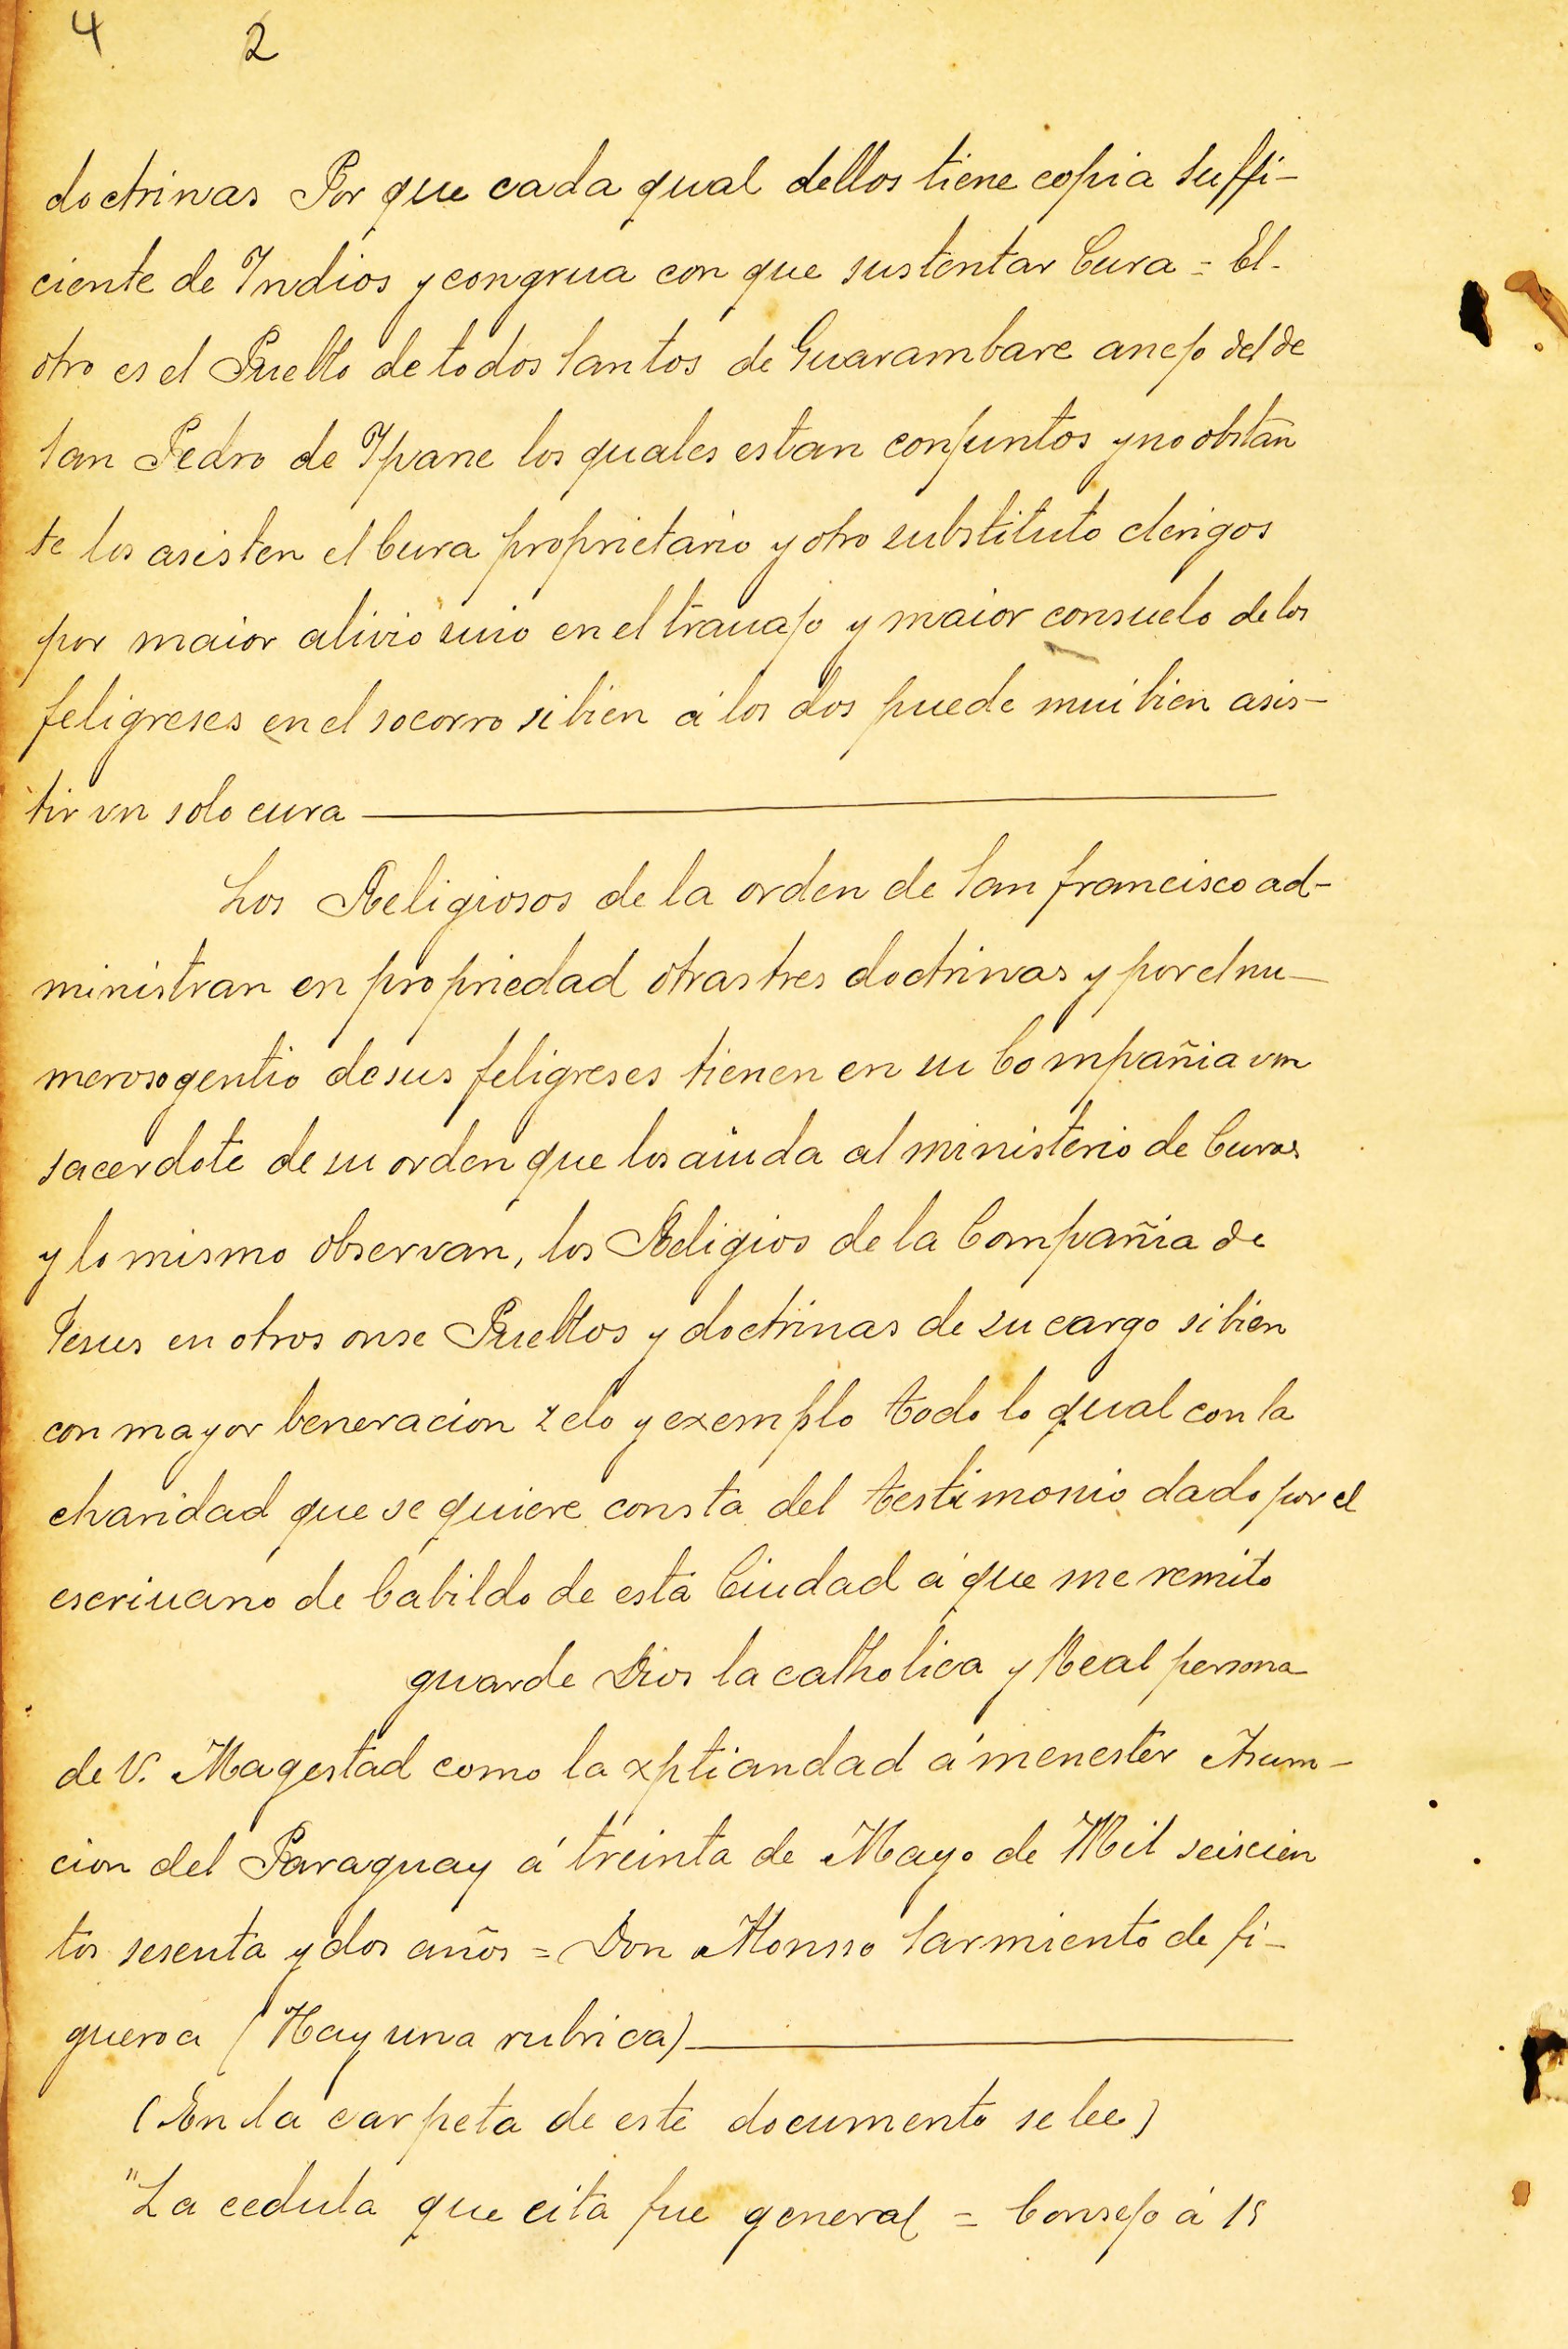 4 2
doctrinas Por que cada qual dellos tiene copia suffi-
ciente de Indios y congrua con que sustentar Cura = El-
otro es el Pueblo de todos Santos de Guarambare anejo del de
San Pedro de Ypane los quales estan conjuntos y no obstan
te los asisten el Cura proprietario y otro substituto clerigos
por maior alivio suio en el trauajo y maior consuelo de los
feligreses en el socorro si bien á los dos puede mui bien asis-
tir vn solo cura
Los Religiosos de la orden de San francisco ad-
ministran en propriedad otras tres doctrinas y por el nu-
meroso gentio de sus feligreses tienen en su Compañia vn
sacerdote de su orden que los aiuda al ministerio de Curas
y lo mismo observan, los Religios de la Compañia de
Jesus en otros onse Pueblos y doctrinas de su cargo si bien
con mayor beneracion zelo y exemplo todo lo qual con la
charidad que se quiere consta del testimonio dado por el
escriuano de Cabildo de esta Ciudad á que me remito
guarde Dios la catholica y Real persona
de V. Magestad como la xptiandad á menester Asum-
cion del Paraguay á treinta de Mayo de Mil seiscien
tos sesenta y dos años = Don Alonsso Sarmiento de fi-
gueroa (Hay una rubrica)
(En la carpeta de este documento se lee)
"La cedula que cita fue general = Consejo á 15